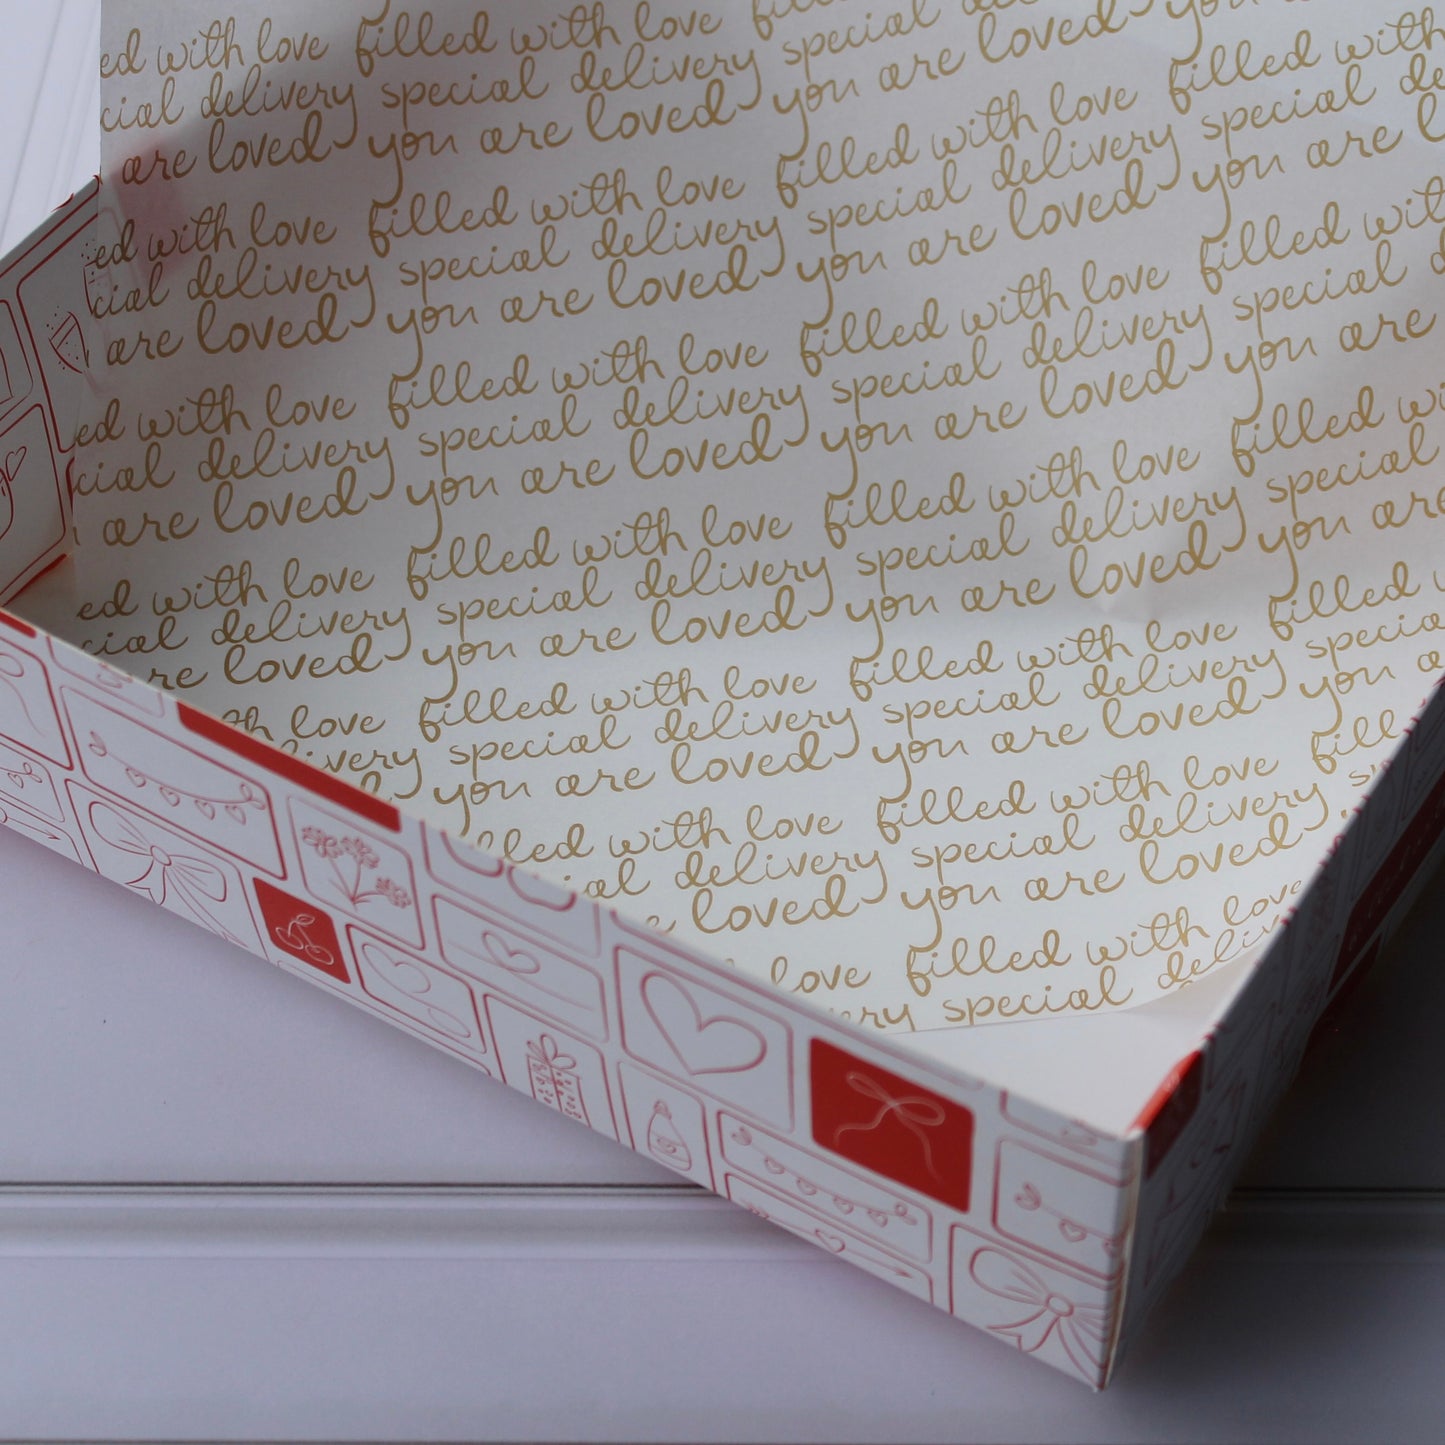 ed with love filled with love filled
cial delivery special delivery special
are loved you are loved you are loved you
ed with love filled with love filled with love filled with
cial delivery special delivery special delivery special
are loved you are loved you are loved you are
ed with love filled with love filled with love filled with
cial delivery special delivery special delivery special
are loved you are loved you are loved you are
ed with love filled with love filled with love filled
cial delivery special delivery special delivery special
are loved you are loved you are loved you are
with love filled with love filled with love filled
delivery special delivery special delivery special
you are loved you are loved you
filled with love filled with love fill
ial delivery special delivery
loved you are loved
love filled with love
ery special delive